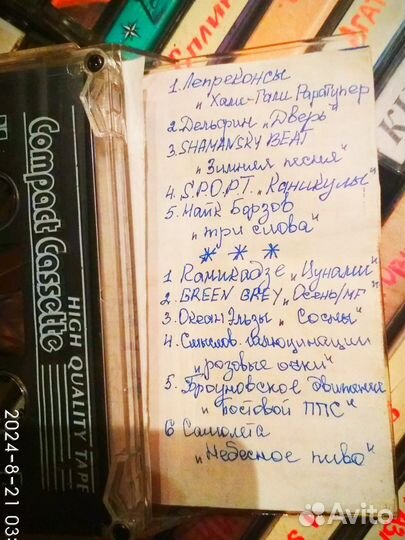 1. Лепреконсы
„Хали-Гали Паратупер"
2. Дельфин „Дверь"
3. SHAMANSKY BEAT
„Зимняя песня"
4. S.P.O.P.T. „Каникулы"
5. Найк Борзов
„три слова"
* * *
1 Камикадзе „Цунами"
2. GREEN GREY „Осень/MF"
3. Океан Эльзы „Сосны"
4. Смыслов. галлюцинации
„розовые очки"
5. Броуновское движение
„Постовой ППС"
6 Самолёта
„Небесное пиво"
Compact Cassette
HIGH QUALITY TAPE
СПЛИН
2024-8-21 03:
Avito